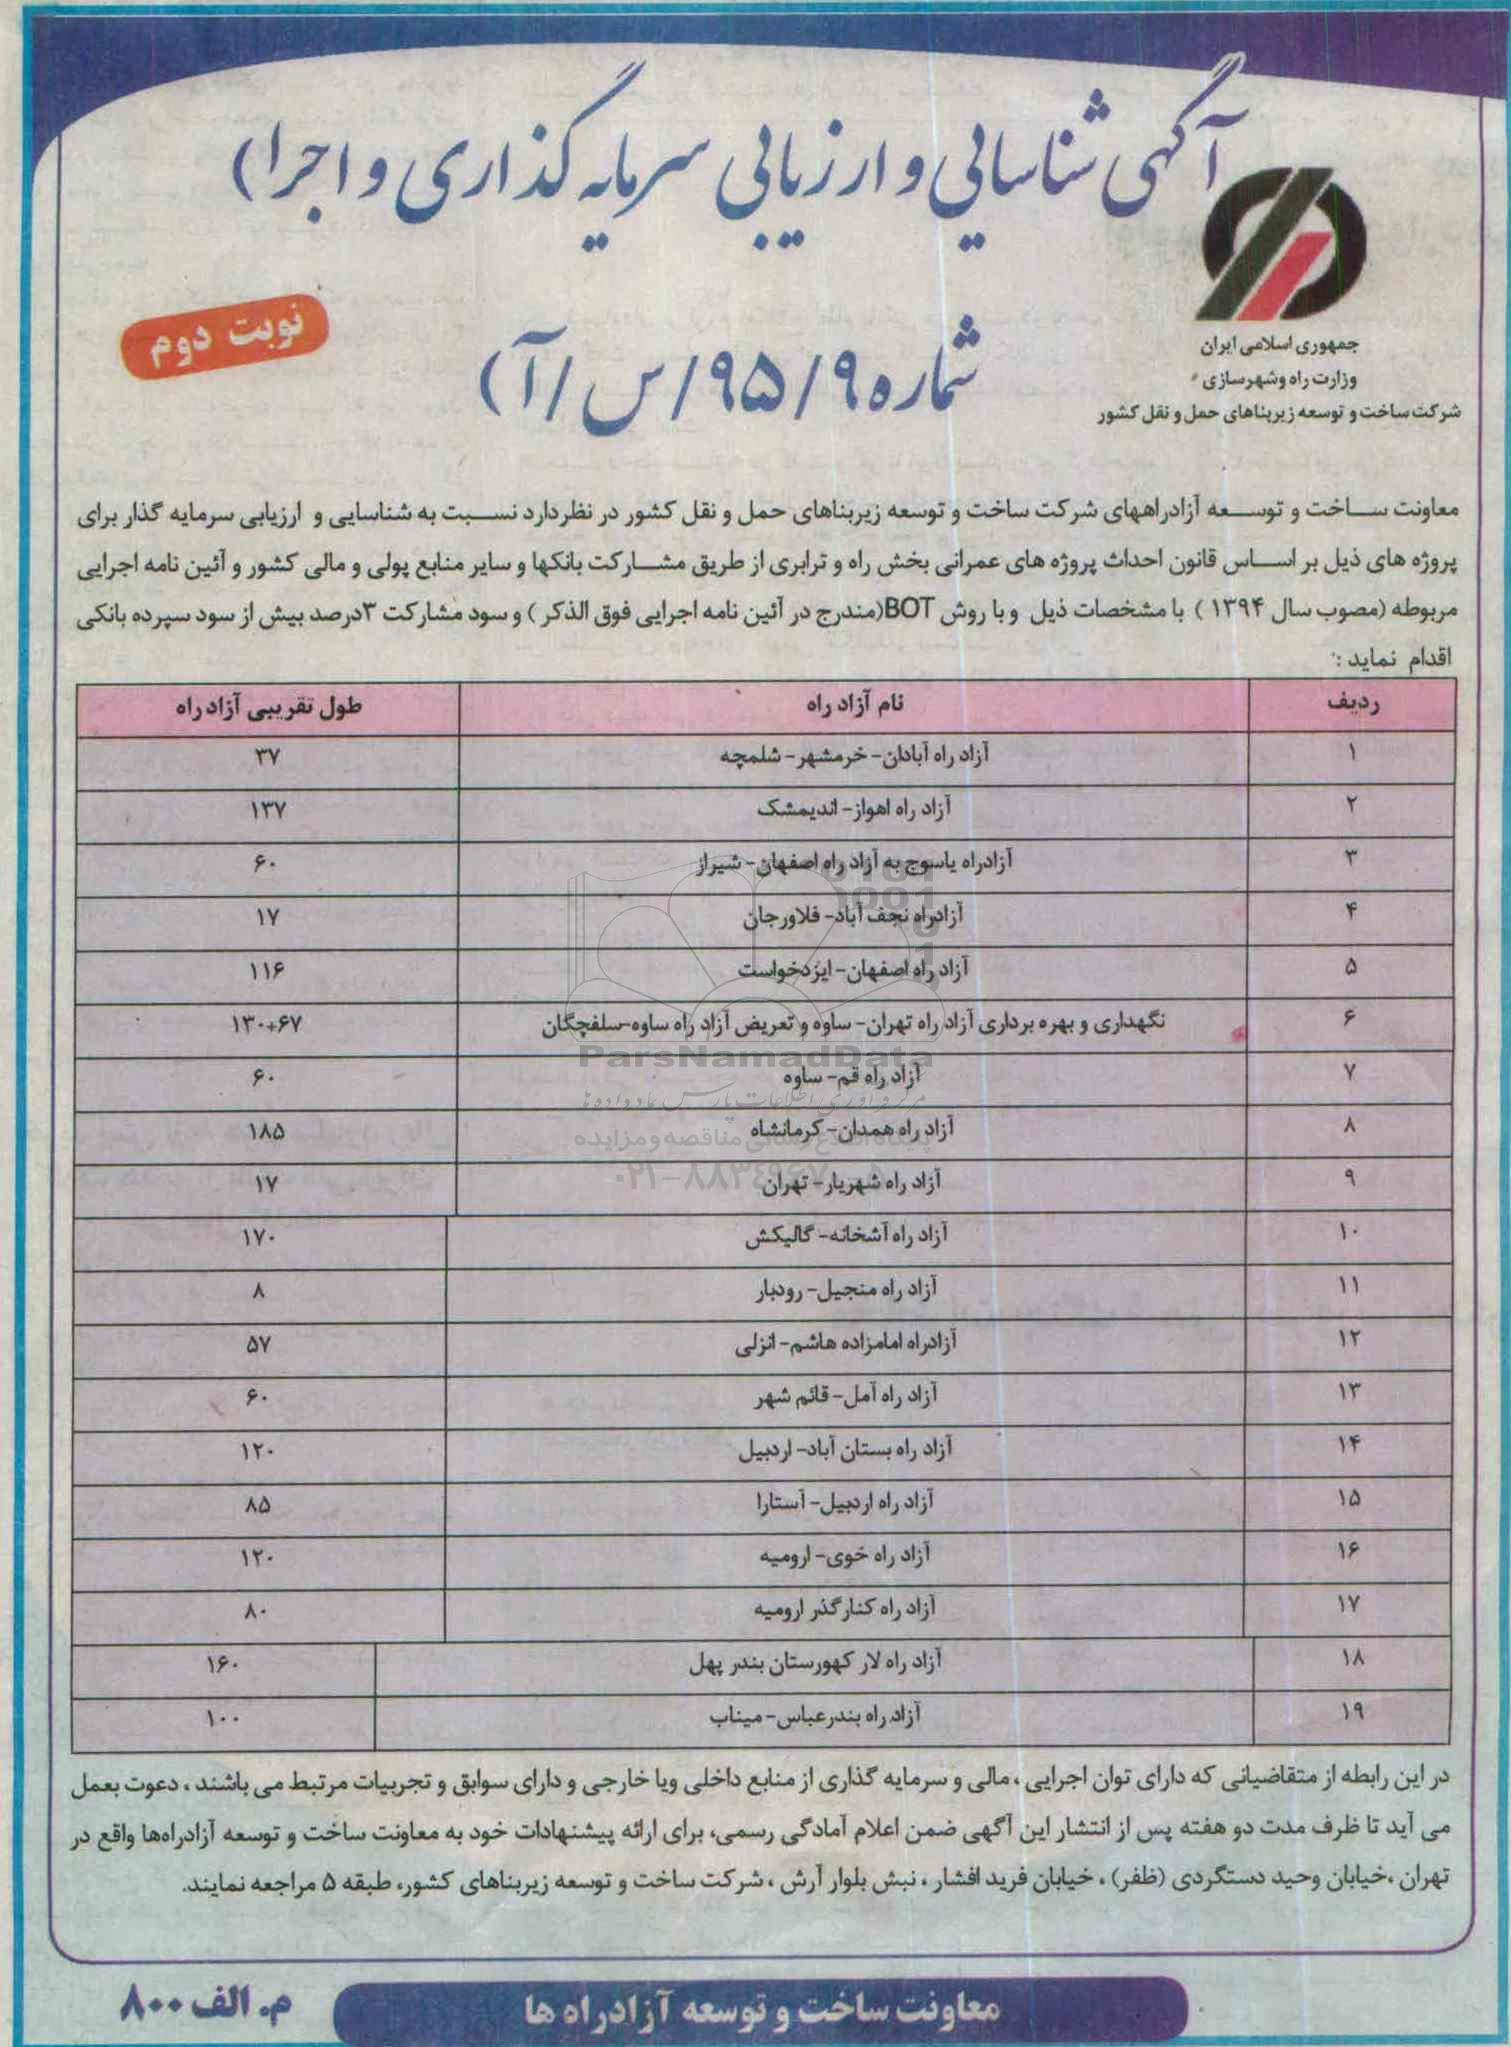 آگهی شناسایی و ارزیابی سرمایه گذاری و اجرا)
شماره ۹۵/۹/س/آ)
نوبت دوم
جمهوری اسلامی ایران
وزارت راه وشهرسازی
شرکت ساخت و توسعه زیربناهای حمل و نقل کشور
معاونت ساخت و توسعه آزادراههای شرکت ساخت و توسعه زیربناهای حمل و نقل کشور در نظردارد نسبت به شناسایی و ارزیابی سرمایه گذار برای
پروژه های ذیل بر اساس قانون احداث پروژه های عمرانی بخش راه و ترابری از طریق مشارکت بانکها و سایر منابع پولی و مالی کشور و آئین نامه اجرایی
مربوطه (مصوب سال ۱۳۹۴ ) با مشخصات ذیل و با روش BOT(مندرج در آئین نامه اجرایی فوق الذکر ) و سود مشارکت ۳درصد بیش از سود سپرده بانکی
اقدام نماید :
ردیف نام آزاد راه طول تقریبی آزاد راه
۱ آزاد راه آبادان- خرمشهر- شلمچه ۳۷
۲ آزاد راه اهواز- اندیمشک ۱۳۷
۳ آزادراه یاسوج به آزاد راه اصفهان- شیراز ۶۰
۴ آزادراه نجف آباد- فلاورجان ۱۷
۵ آزاد راه اصفهان- ایزدخواست ۱۱۶
۶ نگهداری و بهره برداری آزاد راه تهران- ساوه و تعریض آزاد راه ساوه-سلفچگان ۱۳۰+۶۷
ParsNamadData
۷ آزاد راه قم- ساوه ۶۰
۸ آزاد راه همدان- کرمانشاه ۱۸۵
۹ آزاد راه شهریار- تهران ۱۷
۱۰ آزاد راه آشخانه- گالیکش ۱۷۰
۱۱ آزاد راه منجیل- رودبار ۸
۱۲ آزادراه امامزاده هاشم- انزلی ۵۷
۱۳ آزاد راه آمل- قائم شهر ۶۰
۱۴ آزاد راه بستان آباد- اردبیل ۱۲۰
۱۵ آزاد راه اردبیل- آستارا ۸۵
۱۶ آزاد راه خوی- ارومیه ۱۲۰
۱۷ آزاد راه کنارگذر ارومیه ۸۰
۱۸ آزاد راه لار کهورستان بندر پهل ۱۶۰
۱۹ آزاد راه بندرعباس- میناب ۱۰۰
در این رابطه از متقاضیانی که دارای توان اجرایی ، مالی و سرمایه گذاری از منابع داخلی ویا خارجی و دارای سوابق و تجربیات مرتبط می باشند ، دعوت بعمل
می آید تا ظرف مدت دو هفته پس از انتشار این آگهی ضمن اعلام آمادگی رسمی، برای ارائه پیشنهادات خود به معاونت ساخت و توسعه آزادراه‌ها واقع در
تهران ،خیابان وحید دستگردی (ظفر) ، خیابان فرید افشار ، نبش بلوار آرش ، شرکت ساخت و توسعه زیربناهای کشور، طبقه ۵ مراجعه نمایند.
معاونت ساخت و توسعه آزادراه ها
م. الف ۸۰۰